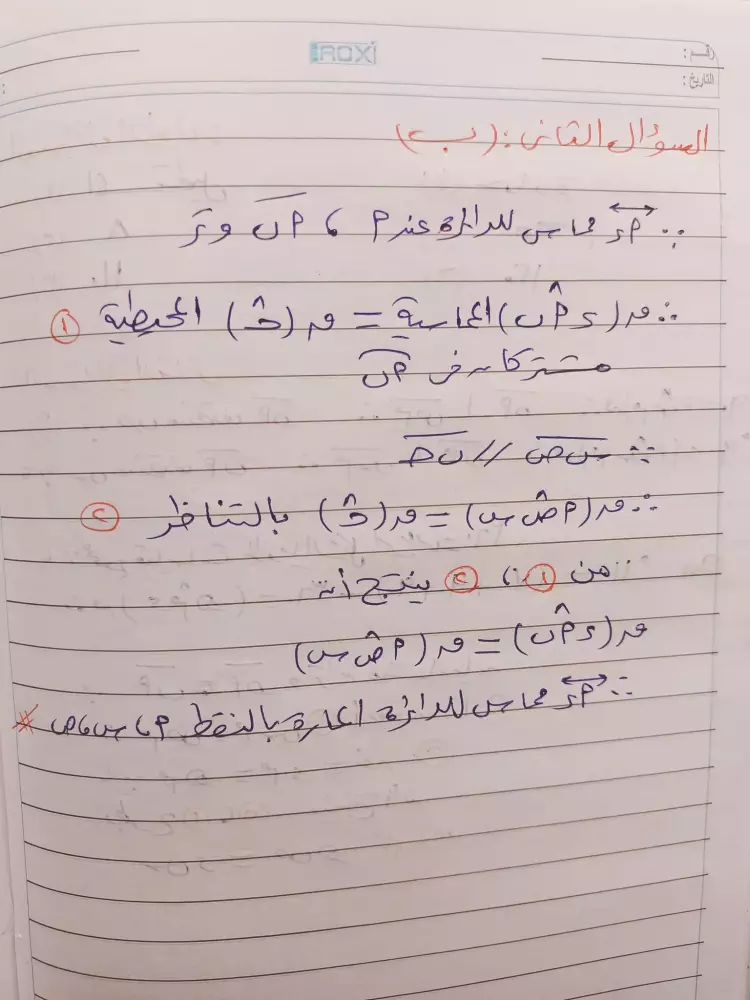 ROXI
رقم:
التاريخ:
السؤال الثانى: (ب)
∵ أء مماس للدائرة عند أ ، أب وتر
∴ ق(ء أ̂ ب) المماسية = ق(حـ̂) المحيطية ①
مشتركان فى أب
∵ س ص // ب حـ
∴ ق(أ ص̂ س) = ق(حـ̂) بالتناظر ②
من ① ، ② ينتج أن
ق(ء أ̂ ب) = ق(أ ص̂ س)
∴ أء مماس للدائرة المارة بالنقط أ ، س ، ص *